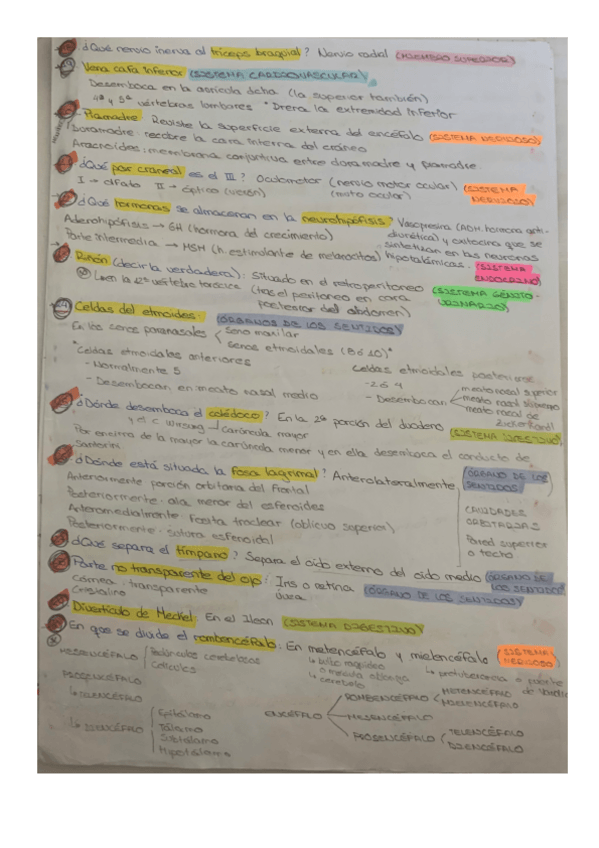 ¿Qué nervio inerva al tríceps braquial? Nervio radial (MIEMBRO SUPERIOR)
Vena cava inferior (SISTEMA CARDIOVASCULAR)
Desemboca en la aurícula dcha (la superior también)
4ª y 5ª vértebras lombares * Drena la extremidad inferior
Piamadre: Reviste la superficie externa del encéfalo (SISTEMA NERVIOSO)
Duramadre: recobre la cara interna del cráneo
Aracnoides: membrana conjuntiva entre duramadre y piamadre.
¿Qué par craneal es el III? Oculomotor (nervio motor ocular) (SISTEMA NERVIOSO)
I → olfato II → óptico (visión) (mixto ocular)
¿Qué hormonas se almacenan en la neurohipófisis? Vasopresina (ADH, hormona anti-
Adenohipófisis → GH (hormona del crecimiento) diurética) y oxitocina que se
Parte intermedia → MSH (h. estimulante de melanocitos) sintetizan en las neuronas
hipotalámicas. (SISTEMA ENDOCRINO)
Riñón (decir la verdadera): Situado en el retroperitoneo (SISTEMA GÉNITO-URINARIO)
en la 12ª vértebra torácica (tras el peritoneo en cara
posterior del abdomen)
Celdas del etmoides: (ÓRGANOS DE LOS SENTIDOS)
En los senos paranasales Seno maxilar
Senos etmoidales (8 6 10)*
*Celdas etmoidales anteriores Celdas etmoidales posteriores
- Normalmente 5 - 2 6 4
- Desembocan en meato nasal medio - Desembocan meato nasal superior
meato nasal supremo
meato nasal de Zuckerkandl
¿Dónde desemboca el colédoco? En la 2ª porción del duodeno (SISTEMA DIGESTIVO)
y el c. Wirsung → carúncula mayor
Por encima de la mayor la carúncula menor y en ella desemboca el conducto de
Santorini
¿Dónde está situada la fosa lagrimal? Anterolateralmente (ÓRGANO DE LOS SENTIDOS)
Anteriormente porción orbitaria del frontal
Posteriormente: ala menor del esfenoides CAVIDADES
Anteromedialmente: Foseta troclear (oblicuo superior) ORBITARIAS
Posteriormente: sutura esfenoidal Pared superior
o techo
¿Qué separa el tímpano? Separa el oído externo del oído medio (ÓRGANO DE LOS SENTIDOS)
Parte no transparente del ojo: Iris o retina (ÓRGANO DE LOS SENTIDOS)
Córnea: transparente úvea
Cristalino
Divertículo de Meckel: En el Ileon (SISTEMA DIGESTIVO)
En que se divide el rombencéfalo. En metencéfalo y mielencéfalo (SISTEMA NERVIOSO)
MESENCÉFALO Pedúnculos cerebelosos ↳ bulbo raquídeo ↳ protuberancia o puente
Colículos o médula oblonga de Varolio
PROSENCÉFALO ↳ cerebelo
↳ TELENCÉFALO
↳ DIENCÉFALO Epitálamo
Tálamo
Subtálamo
Hipotálamo
ENCÉFALO ROMBENCÉFALO METENCÉFALO
MIELENCÉFALO
MESENCÉFALO
PROSENCÉFALO TELENCÉFALO
DIENCÉFALO